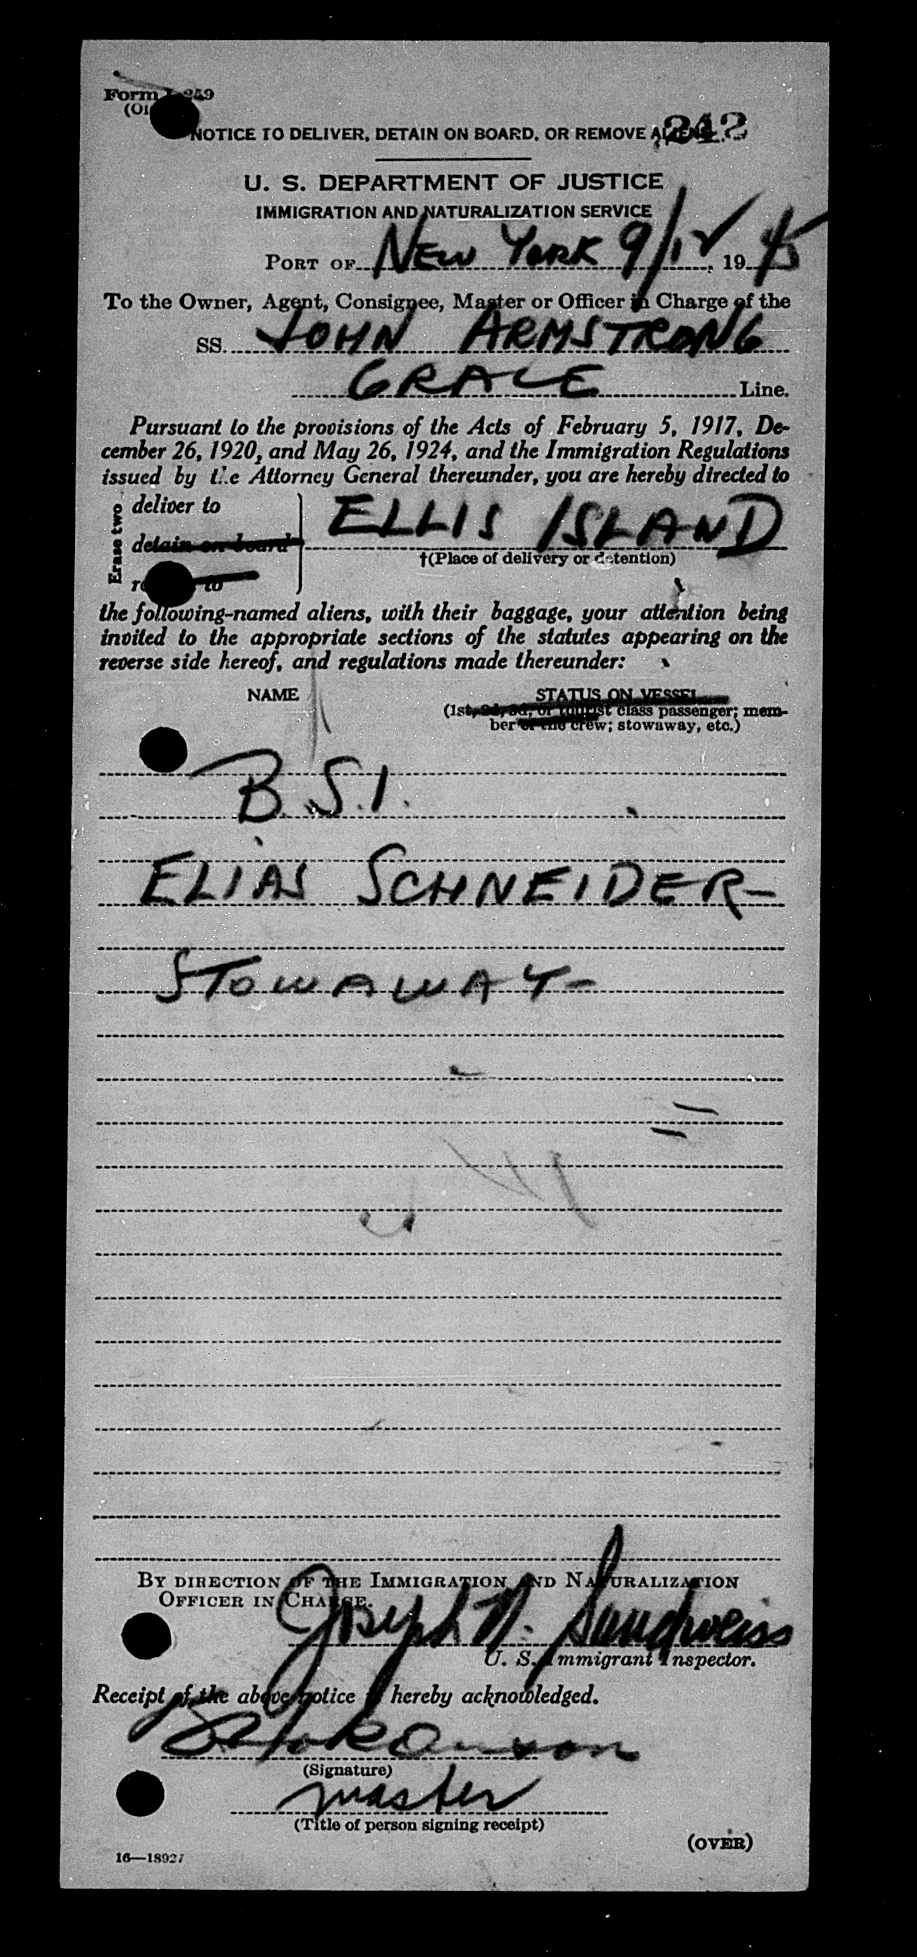 Form I-259
NOTICE TO DELIVER, DETAIN ON BOARD, OR REMOVE ALIENS
242
U. S. DEPARTMENT OF JUSTICE
IMMIGRATION AND NATURALIZATION SERVICE
PORT OF NEW YORK 9/12, 1945
To the Owner, Agent, Consignee, Master or Officer in Charge of the
SS. JOHN ARMSTRONG
GRACE Line.
Pursuant to the provisions of the Acts of February 5, 1917, De-
cember 26, 1920, and May 26, 1924, and the Immigration Regulations
issued by the Attorney General thereunder, you are hereby directed to
Erase two
deliver to
detain on board
to
ELLIS ISLAND
†(Place of delivery or detention)
the following-named aliens, with their baggage, your attention being
invited to the appropriate sections of the statutes appearing on the
reverse side hereof, and regulations made thereunder:
NAME STATUS ON VESSEL
(1st, 2d, 3d, or tourist class passenger; mem-
ber of the crew; stowaway, etc.)
B.S.I.
ELIAS SCHNEIDER-
STOWAWAY-
BY DIRECTION OF THE IMMIGRATION AND NATURALIZATION
OFFICER IN CHARGE.
Joseph N. Sandweiss
U. S. Immigrant Inspector.
Receipt of the above notice is hereby acknowledged.
(Signature)
master
(Title of person signing receipt)
(OVER)
16—18927